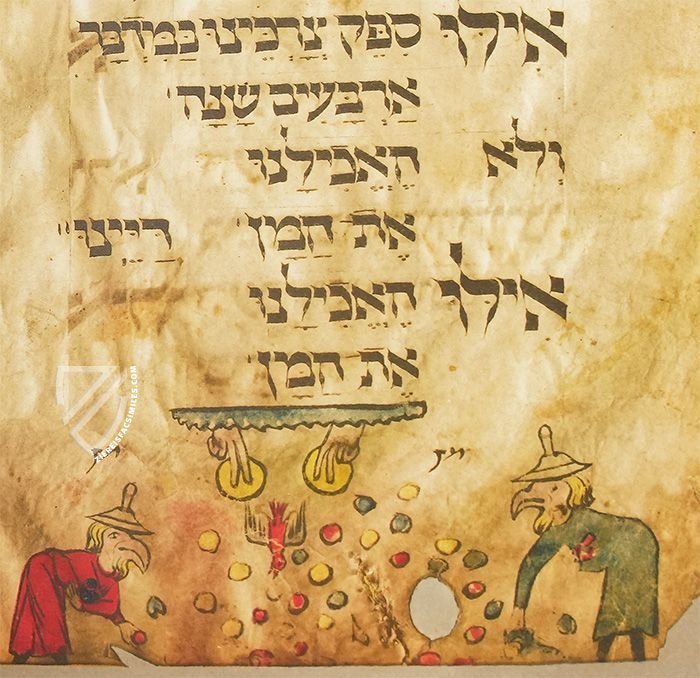 אִילוּ סִפֵּק צָרְכֵּינוּ בַּמִדְבָּר
אַרְבָּעִים שָׁנָה
וְלֹא הֶאֱכִילָנוּ
אֶת הַמָּן דַיֵינוּ
אִילוּ הֶאֱכִילָנוּ
אֶת הַמָּן
מן
ZIEREISFACSIMILES.COM